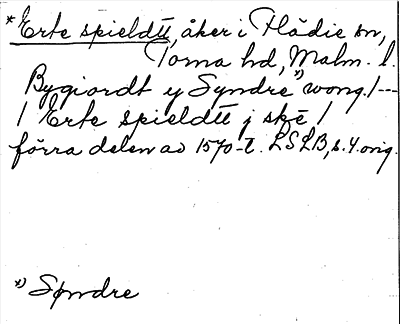 * Erte spieldtt, åker i Flädie sn,
Torna hd, Malm. l.
Bygiordt y Syndre *) wong. / ---
/ Erte spieldtt j skē /
förra delen av 1570-t. LSLB, s. 4. orig.
*) Spndre